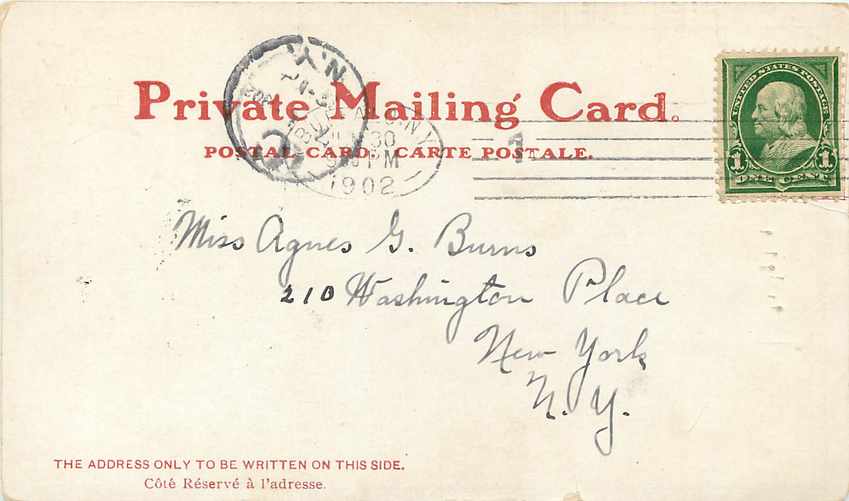 Private Mailing Card.
POSTAL CARD, CARTE POSTALE.
N.Y.
30
PM
1902
UNITED STATES POSTAGE
1 1
ONE CENT
Miss Agnes G. Burns
210 Washington Place
New York
N. Y.
THE ADDRESS ONLY TO BE WRITTEN ON THIS SIDE.
Côté Réservé à l'adresse.